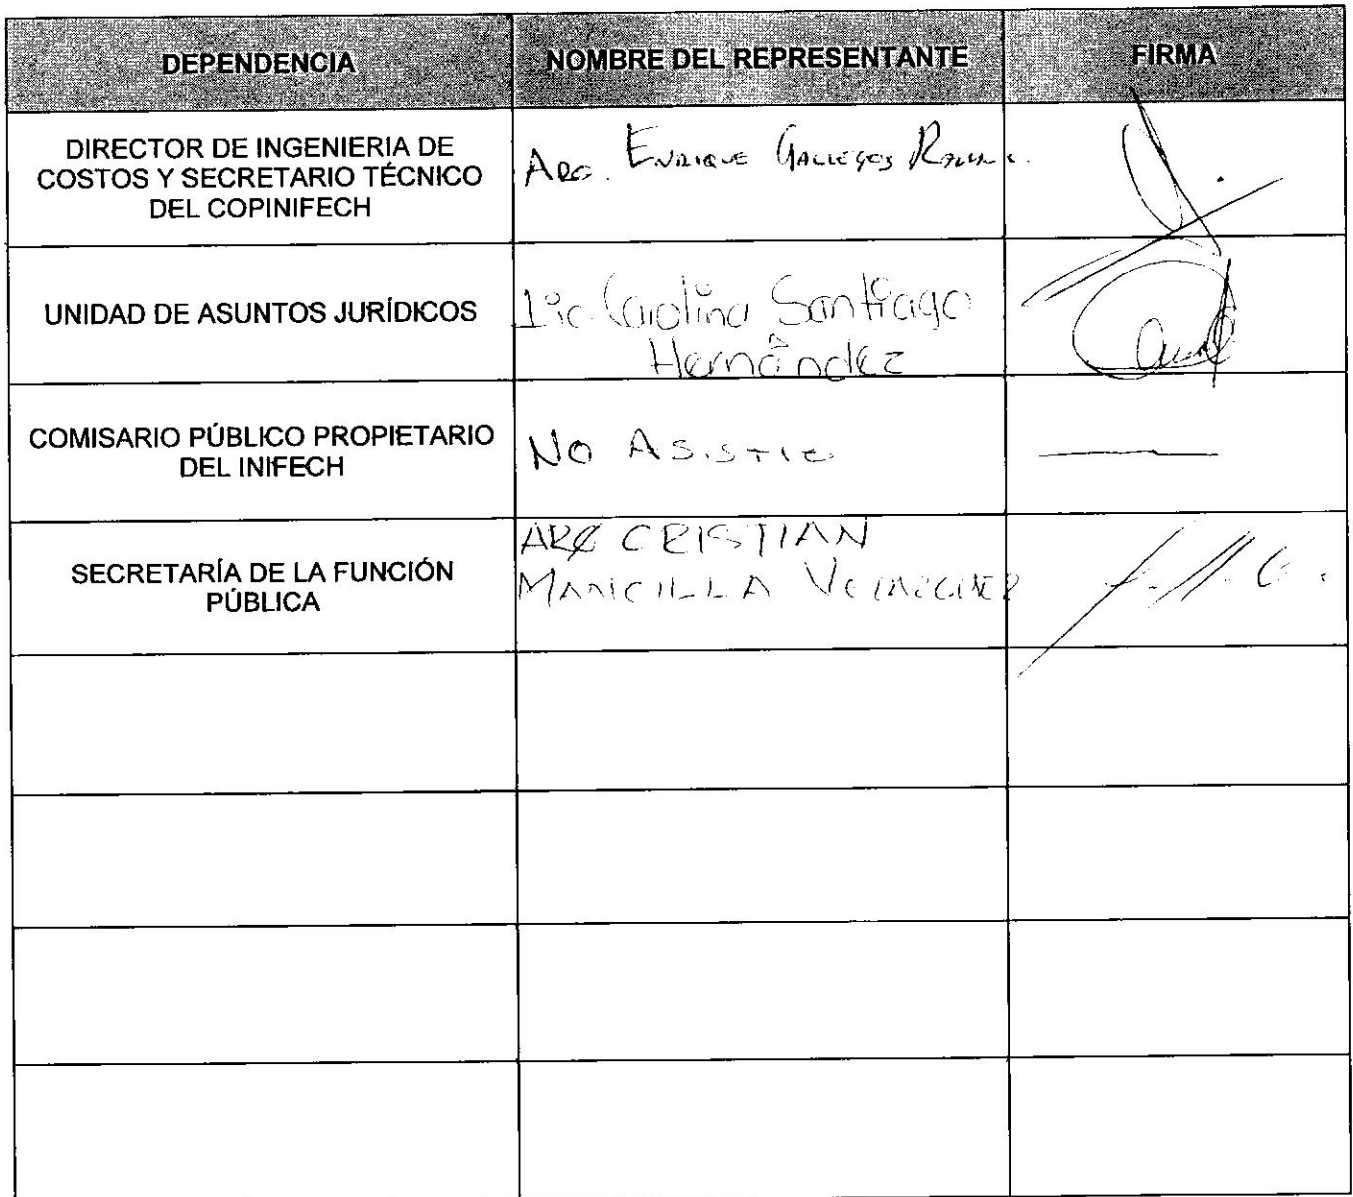 DEPENDENCIA
NOMBRE DEL REPRESENTANTE
FIRMA
DIRECTOR DE INGENIERIA DE
COSTOS Y SECRETARIO TÉCNICO
DEL COPINIFECH
ARQ. ENRIQUE GALLEGOS
UNIDAD DE ASUNTOS JURÍDICOS
Lic. Carolina Santiago
Hernández
COMISARIO PÚBLICO PROPIETARIO
DEL INIFECH
NO ASISTIO
SECRETARÍA DE LA FUNCIÓN
PÚBLICA
ARQ CRISTIAN
MANCILLA